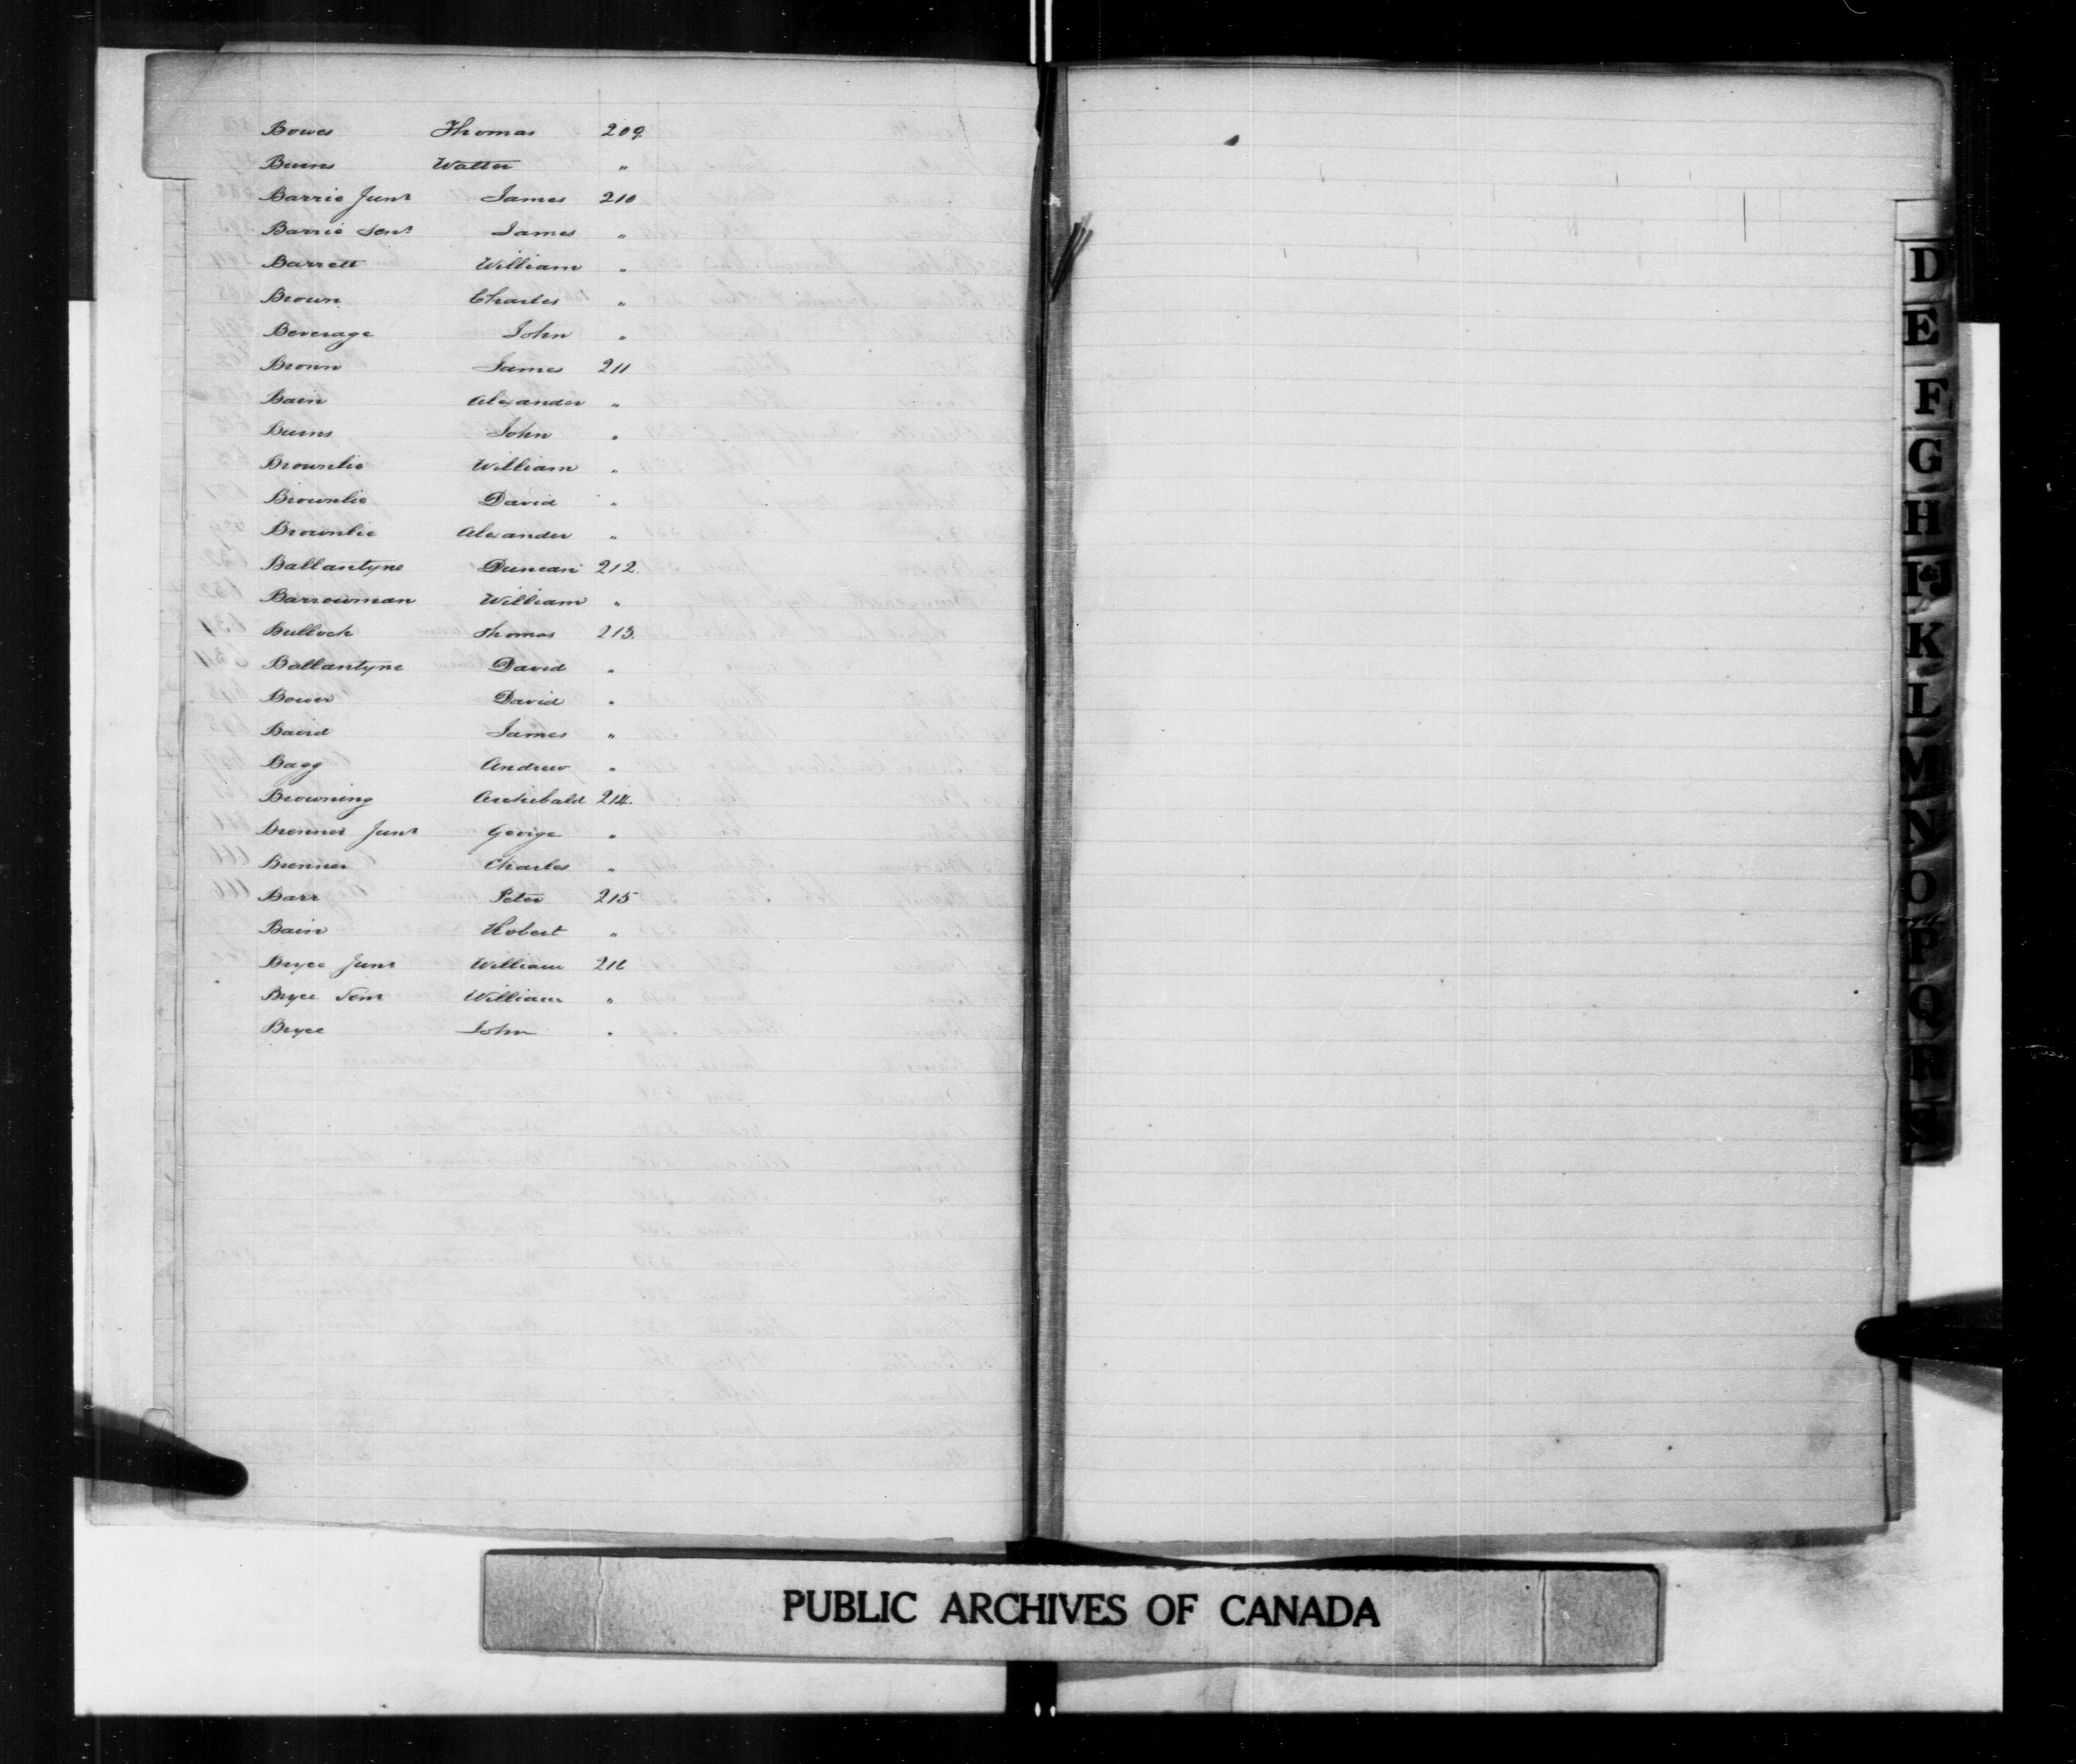 Bowes Thomas 209.
Burns Walter "
Barrie Junr James 210
Barrie Senr James "
Barrett William "
Brown Charles "
Beverage John "
Brown James 211
Bain Alexander "
Burns John "
Brownlie William "
Brownlie David "
Brownlie Alexander "
Ballantyne Duncan 212.
Barrowman William "
Bullock Thomas 213.
Ballantyne David "
Bower David "
Baird James "
Bagg Andrew "
Browning Archibald 214.
Brenner Junr George "
Brenner Charles "
Barr Peter 215
Bain Robert "
Bryce Junr William 216
Bryce Senr William "
Bryce John "
D
E
F
G
H
K
L
M
N
O
P
Q
R
PUBLIC ARCHIVES OF CANADA